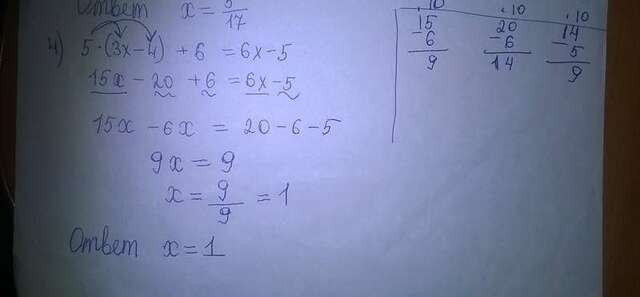 Ответ x = 5/17
4) 5·(3x-4) + 6 = 6x-5
15x - 20 + 6 = 6x - 5
15x - 6x = 20 - 6 - 5
9x = 9
x = 9/9 = 1
Ответ x = 1
·10 ·10 ·10
15 20 14
- 6 - 6 - 5
9 14 9